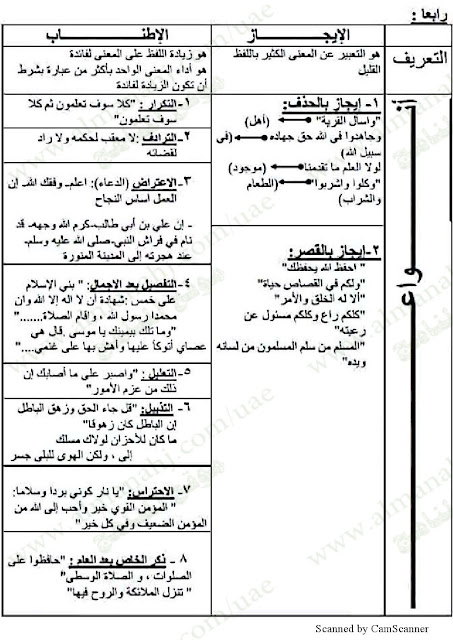 رابعا :
الإيجـــــــاز
الإطنـــــاب
التعريف
هو التعبير عن المعنى الكثير باللفظ
القليل
هو زيادة اللفظ على المعنى لفائدة
هو أداء المعنى الواحد بأكثر من عبارة بشرط
أن تكون الزيادة لفائدة
أنــــواع
١- إيجاز بالحذف:
"واسأل القرية" (أهل)
وجاهدوا في الله حق جهاده (في
سبيل الله)
لولا العلم ما تقدمنا (موجود)
"وكلوا واشربوا" (الطعام
والشراب)
٢-إيجاز بالقصر:
" احفظ الله يحفظك"
"ولكم في القصاص حياة"
"ألا له الخلق والأمر"
"كلكم راع وكلكم مسئول عن
رعيته"
"المسلم من سلم المسلمون من لسانه
ويده"
١- التكرار : "كلا سوف تعلمون ثم كلا
سوف تعلمون"
٢- الترادف :لا معقب لحكمه ولا راد
لقضائه
٣- الاعتراض (الدعاء): اعلم- وفقك الله- إن
العمل اساس النجاح
- إن علي بن أبي طالب-كرم الله وجهه- قد
نام في فراش النبي-صلى الله عليه وسلم-
عند هجرته إلى المدينة المنورة
٤- التفصيل بعد الاجمال: " بني الإسلام
على خمس :شهادة أن لا اله إلا الله وان
محمدا رسول الله ، واقام الصلاة......."
"وما تلك بيمينك يا موسى .قال هي
عصاي أتوكأ عليها وأهش بها على غنمي...."
٥- التعليل : "واصبر على ما أصابك إن
ذلك من عزم الأمور"
٦- التذييل: "قل جاء الحق وزهق الباطل
إن الباطل كان زهوقا"
ما كان للأحزان لولاك مسلك
إلى ، ولكن الهوى للبلى جسر
٧- الاحتراس: "يا نار كوني بردا وسلاما:
" المؤمن القوي خير وأحب إلى الله من
المؤمن الضعيف وفي كل خير"
٨ - ذكر الخاص بعد العام : "حافظوا على
الصلوات ، و الصلاة الوسطى"
" تنزل الملائكة والروح فيها"
www.almanahj.com/uae
Scanned by CamScanner